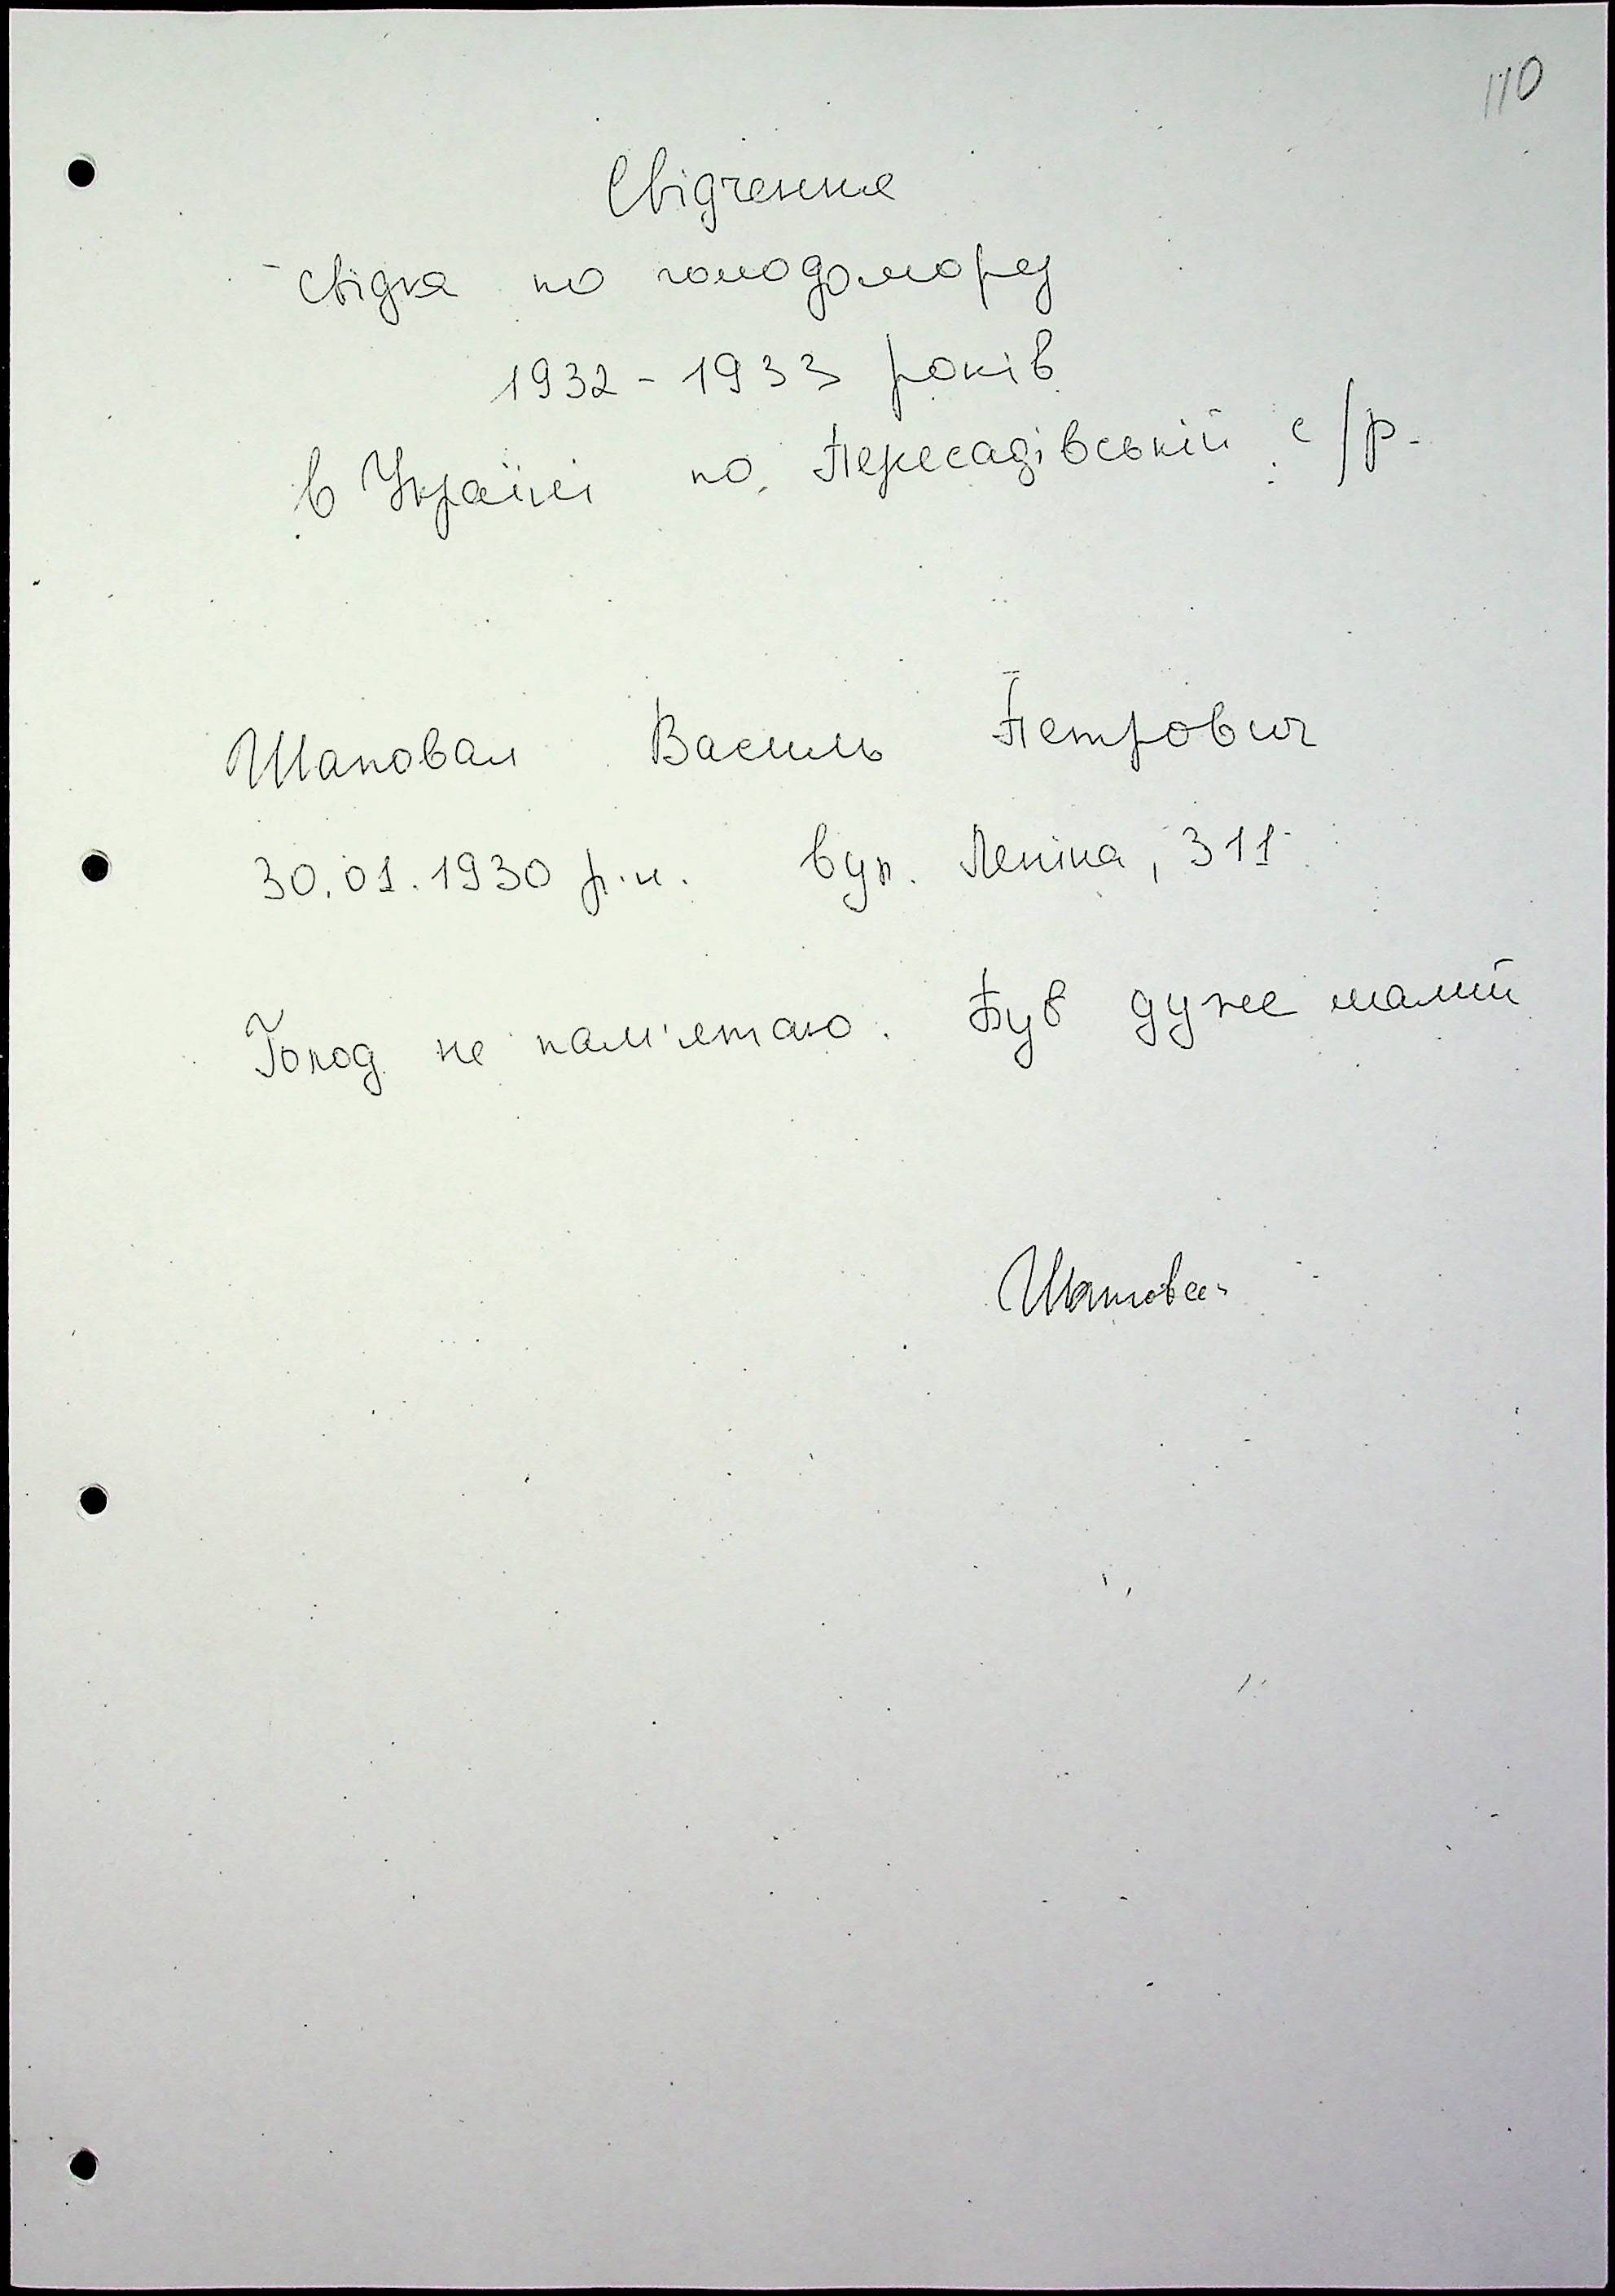 110
Свідчення
свідка по голодомору
1932 - 1933 років
в Україні по Пересадівській с/р.
Шаповал Василь Петрович
30.01.1930 р.н. вул. Леніна, 311
Голод не пам'ятаю. Був дуже малий
Шаповал